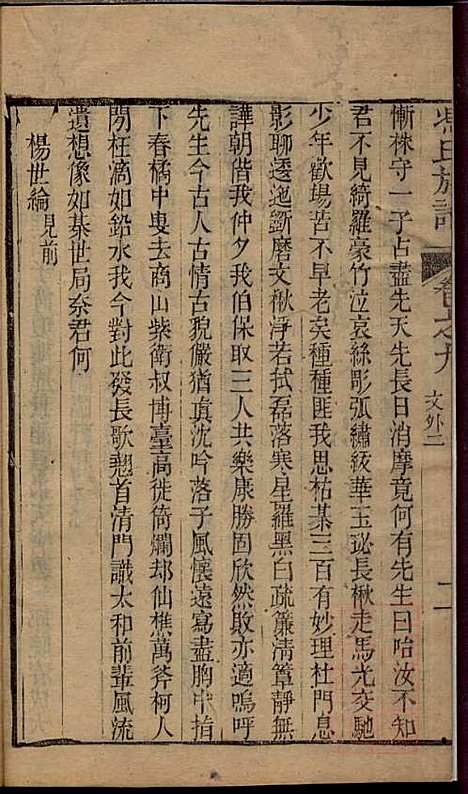 慚株守一子占盡先天先長日消摩竟何有先生曰咍汝不知
君不見綺羅豪竹泣哀絲彫弧繡紱華玉珌長楸走馬光交馳
少年歡場苦不早老矣種種匪我思枯棊三百有妙理杜門息
影聊逶迤斵磨文楸淨若拭磊落寒星羅黑白疏簾清簟靜無
譁朝偕我仲夕我伯保取三人共樂康勝固欣然敗亦適嗚呼
先生今古人古情古貌儼猶眞沈吟落子風懷遠寫盡胸中指
下春橘中叟去商山紫衛叔博臺高徙倚爛却仙樵萬斧柯人
閒枉滴如鉛水我今對此發長歌翹首清門識太和前輩風流
遺想像如棊世局奈君何
楊世綸見前
馮氏族譜
卷之九
文外二
二